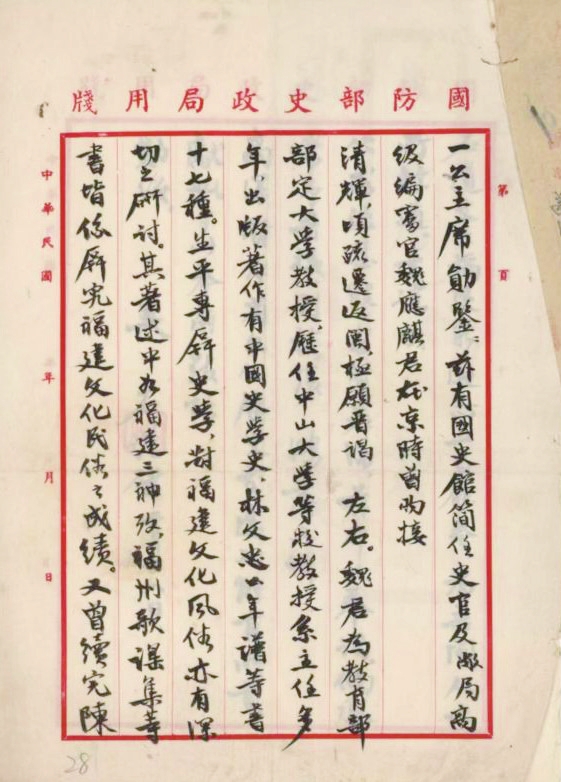 國防部史政局用牋
第 頁
一公主席勛鑒：茲有國史館簡任史官及敝局高
级编審官魏應麒君在京時曾為接
清輝，頃疏遷返閩，極願晋謁 左右。魏君為教育部
部定大学教授，歷任中山大学等校教授系主任多
年，出版著作有中國史学史、林文忠公年譜等書
十七種。生平專研史学，對福建文化風俗亦有深
切之研讨。其著述中如福建三神攷，福州歌謠集等
書皆係研究福建文化民俗之成绩。又曾續完陳
中華民國 年 月 日
28